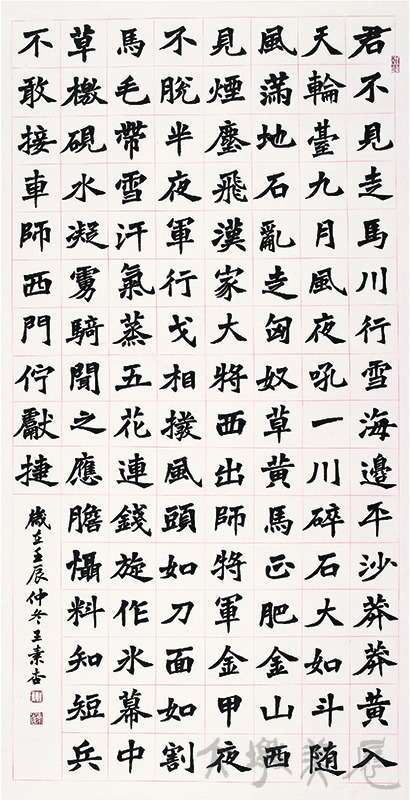 君不見走馬川行雪海邊平沙莽莽黃入
天輪臺九月風夜吼一川碎石大如斗随
風滿地石亂走匈奴草黃馬正肥金山西
見煙塵飛漢家大將西出師將軍金甲夜
不脫半夜軍行戈相撥風頭如刀面如割
馬毛帶雪汗氣蒸五花連錢旋作氷幕中
草檄硯水凝虜騎聞之應膽懾料知短兵
不敢接車師西門佇獻捷
歲在壬辰仲冬王素杏